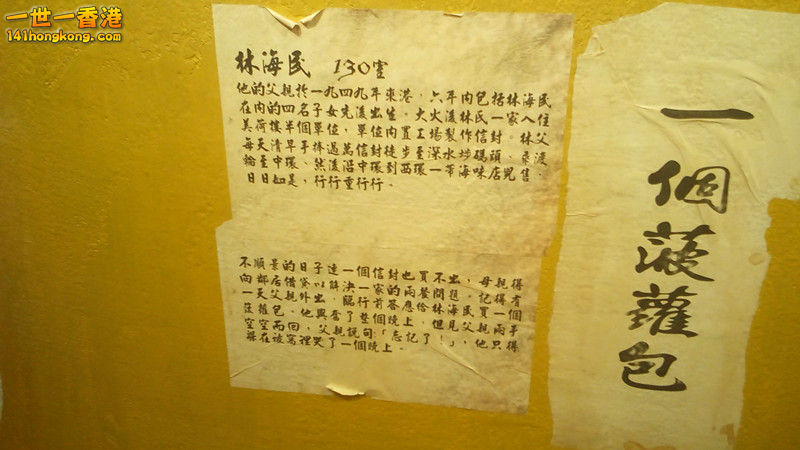 一世一香港
141hongkong.com
林海民 130室
他的父親於一九四九年來港，六年內包括林海民
在內的四名子女先後出生。大火後林氏一家入住
美荷樓半個單位，單位內置工場製作信封。林父
每天清早手捧過萬信封徒步至深水埗碼頭，乘渡
輪至中環、然後沿中環到西環一帶海味店兜售，
日日如是，行行重行行。
不順景的日子連一個信封也買不出，母親得
向鄰居借貸以解決一家的兩餐問題。記得有
一天父親外出，臨行前答應給林海民買一個
菠蘿包。他興奮了整個晚上，但見父親兩手
空空而回，父親說句「忘記了！」，他只得
躲在被窩裡哭了一個晚上。
一個菠蘿包